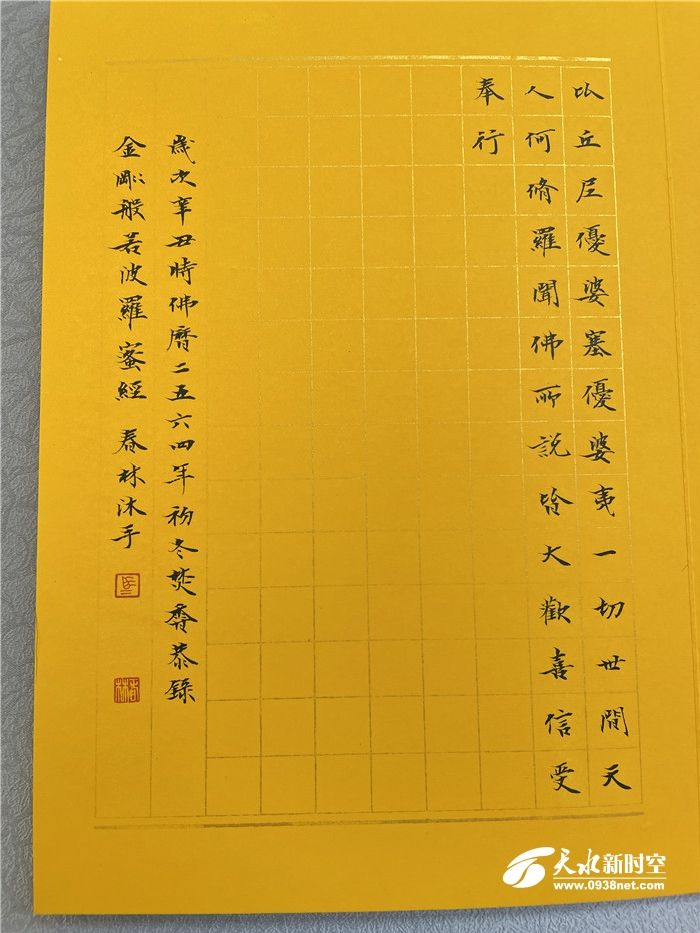 比丘尼優婆塞優婆夷一切世間天
人何脩羅聞佛所說皆大歡喜信受
奉行
歲次辛丑時佛曆二五六四年初冬焚香恭錄
金剛般若波羅蜜經 春林沐手
天水新时空
www.0938net.com